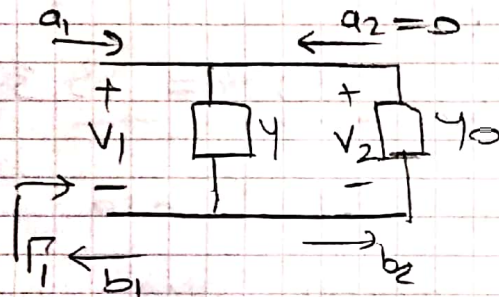 a₁ a₂ = 0
+ +
V₁ Y V₂ Y₀
− −
Γ₁ b₁ b₂